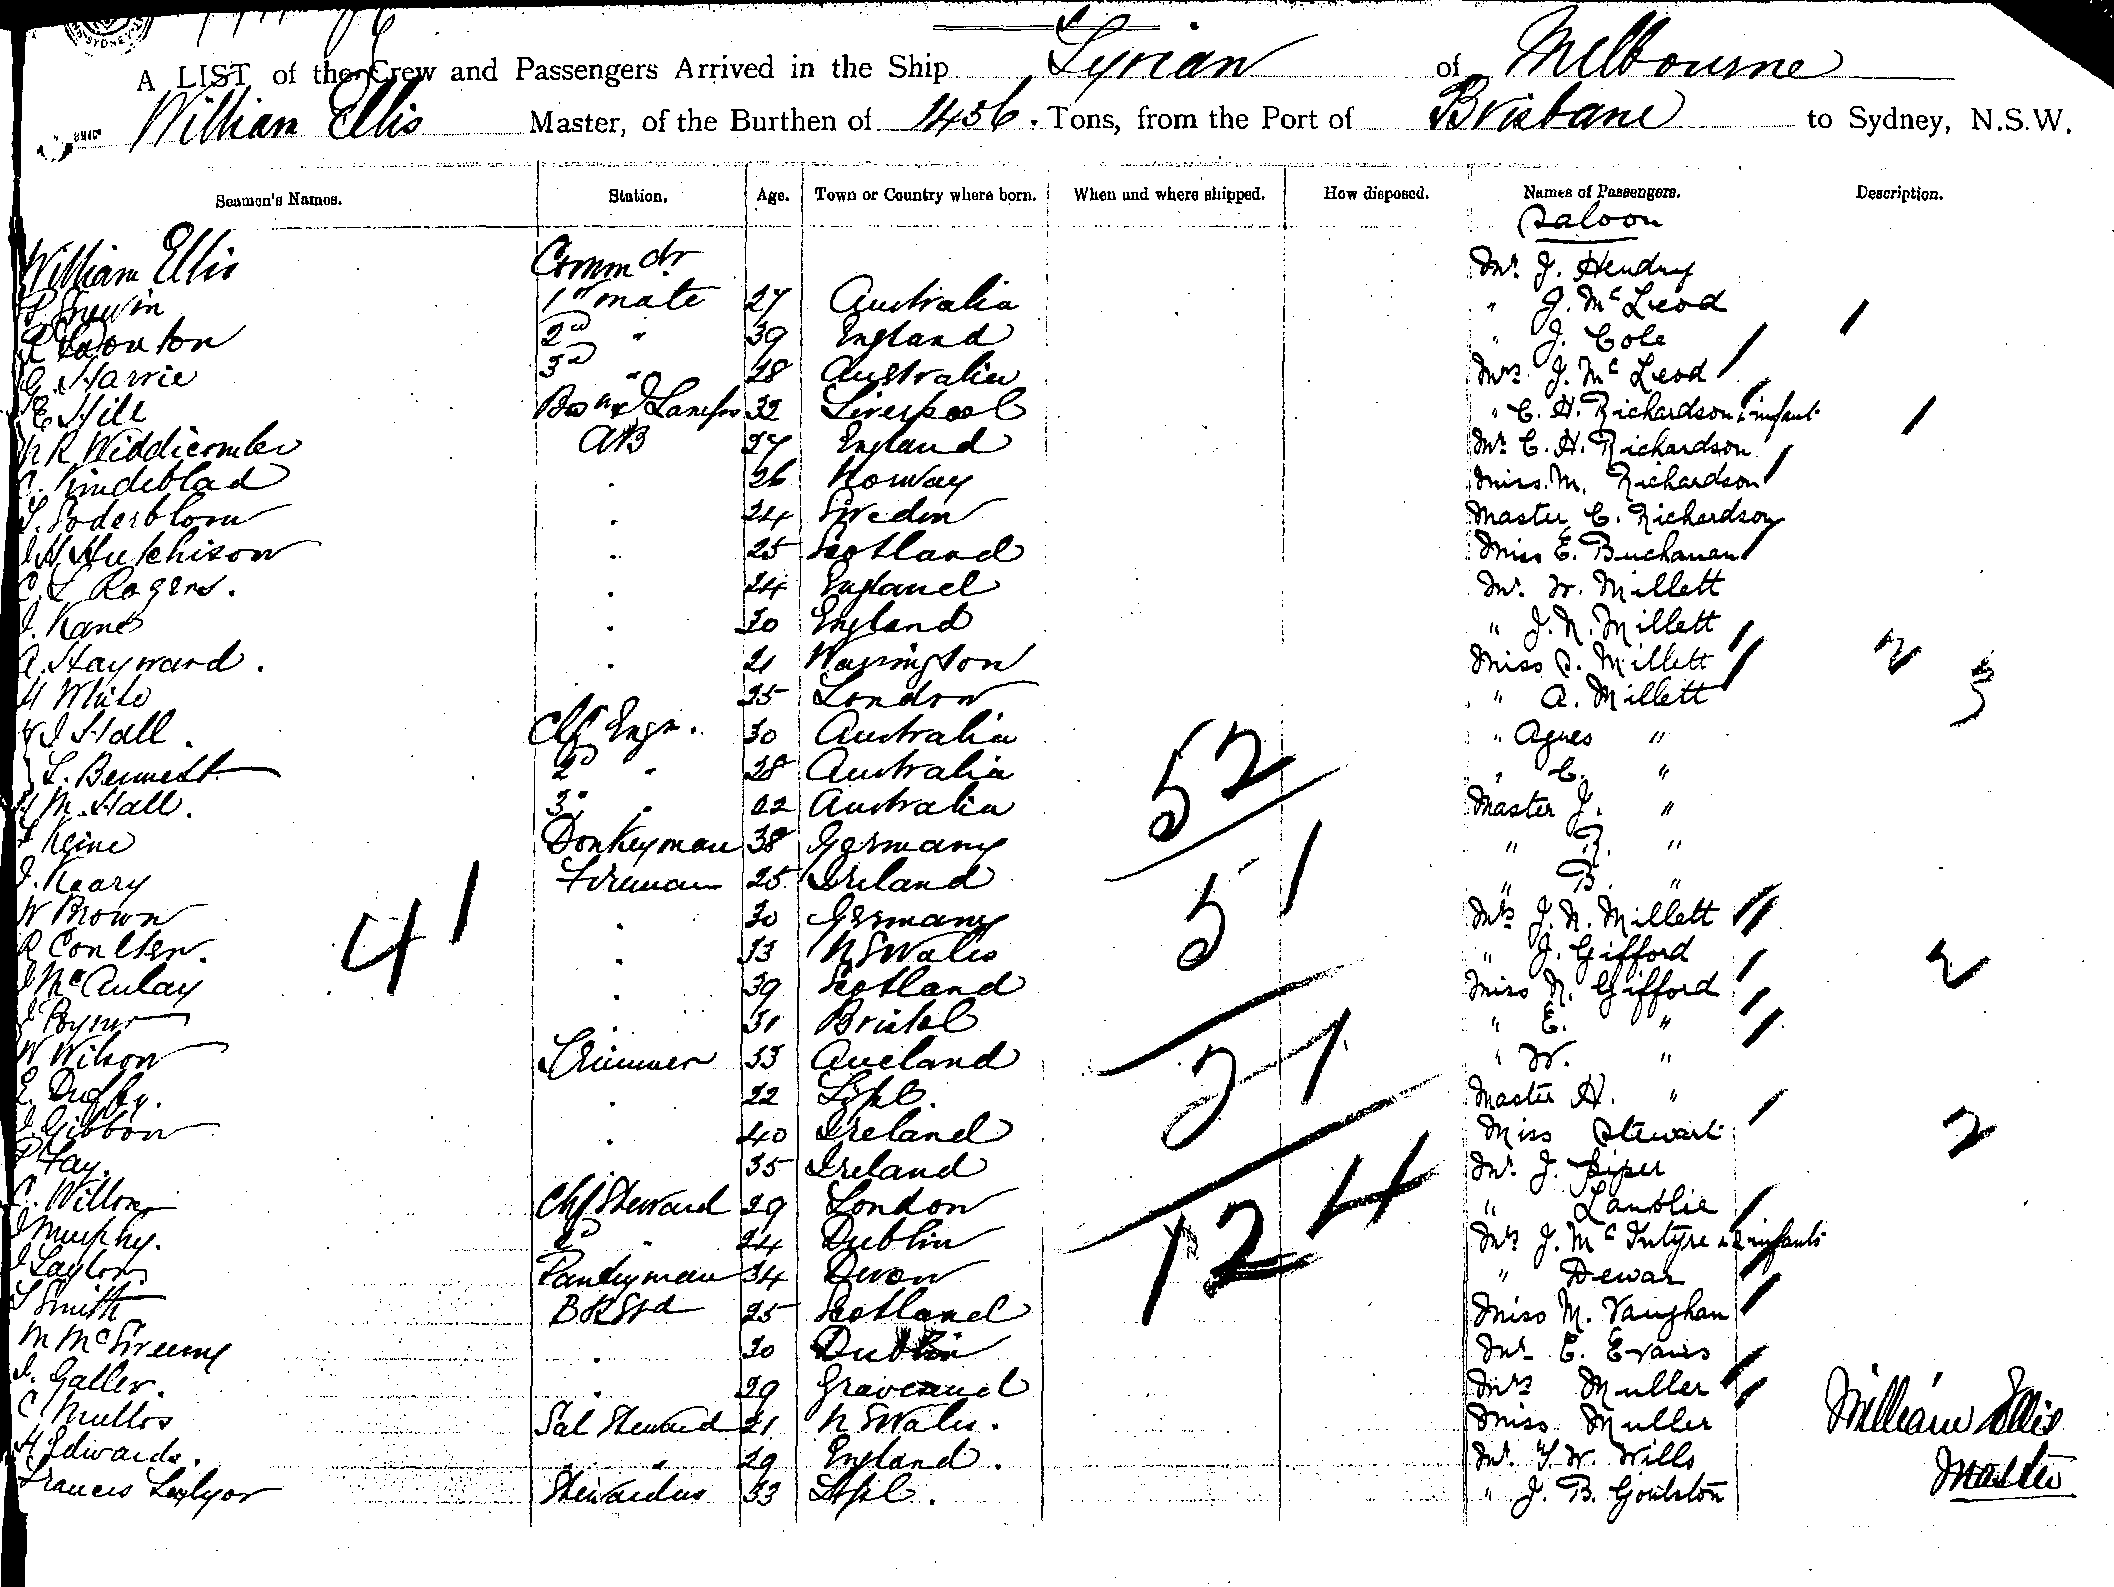 SYDNEY
A LIST of the Crew and Passengers Arrived in the Ship Tyrian of Melbourne
William Ellis Master, of the Burthen of 1456 Tons, from the Port of Brisbane to Sydney, N.S.W.
Seamen's Names. Station. Age. Town or Country where born. When and where shipped. How disposed. Names of Passengers. Description.
Saloon
William Ellis Commdr Mr. J. Hendry
27 1st mate Australia " J. McLeod
2nd " 39 England " J. Cole
G. Harrie 3rd " 28 Australia Mrs J. McLeod
E. Hill 32 Liverpool " C. H. Richardson & infant
N R Widdicombe AB 27 England Mr. C. H. Richardson
C. Lindeblad . 26 Norway Miss M. Richardson
S. Soderblom . 24 Sweden Master C. Richardson
J H Hutchison . 25 Scotland Miss E. Buchanan
C. L Rogers. . 24 England Mr. W. Millett
J. Kane . 30 England " J. N. Millett
A. Hayward. . 21 Warrington Miss S. Millett 2
H White 25 London " A. Millett 3
J Hall. Chf Engr. 30 Australia " Agnes "
L. Bennett 2nd " 28 Australia " C. " 52
H M. Hall. 3rd " 22 Australia Master J. "
Keine Donkeyman 38 Germany " R. "
J. Keary Fireman 25 Ireland " B. "
W Brown . 30 Germany Mrs J. N. Millett 41 51
R Coulter. . 33 N S Wales " J. Gifford
J McAulay . 39 Scotland Miss N. Gifford 2
J Poyner . 31 Bristol " E. "
W Wilson Trimmer 33 " W. " 21
E. Duffy. . 22 Lpl. Master H. "
J. Gibbon . 40 Ireland Miss Stewart 2
P Fay. 35 Ireland Mr. J. Piper
C. Wilton Chf Steward 29 London " 124
J Murphy. 2nd " 24 Dublin Mrs J. McIntyre & 2 infants
J Taylor Pantryman 34 Devon " Dewar
S Smith B R Std 25 Scotland Miss M. Vaughan
M . 30 Dublin Mr. E. Evans
J. Galler. . 29 Gravesend Mrs Muller
C Mullos Sal Steward 21 N S Wales. Miss Muller William Ellis
H Edwards. " " 29 England. Mr. T. W. Wills Master
Francis Taylor Stewardess 33 Lpl. " J. B. Goulston